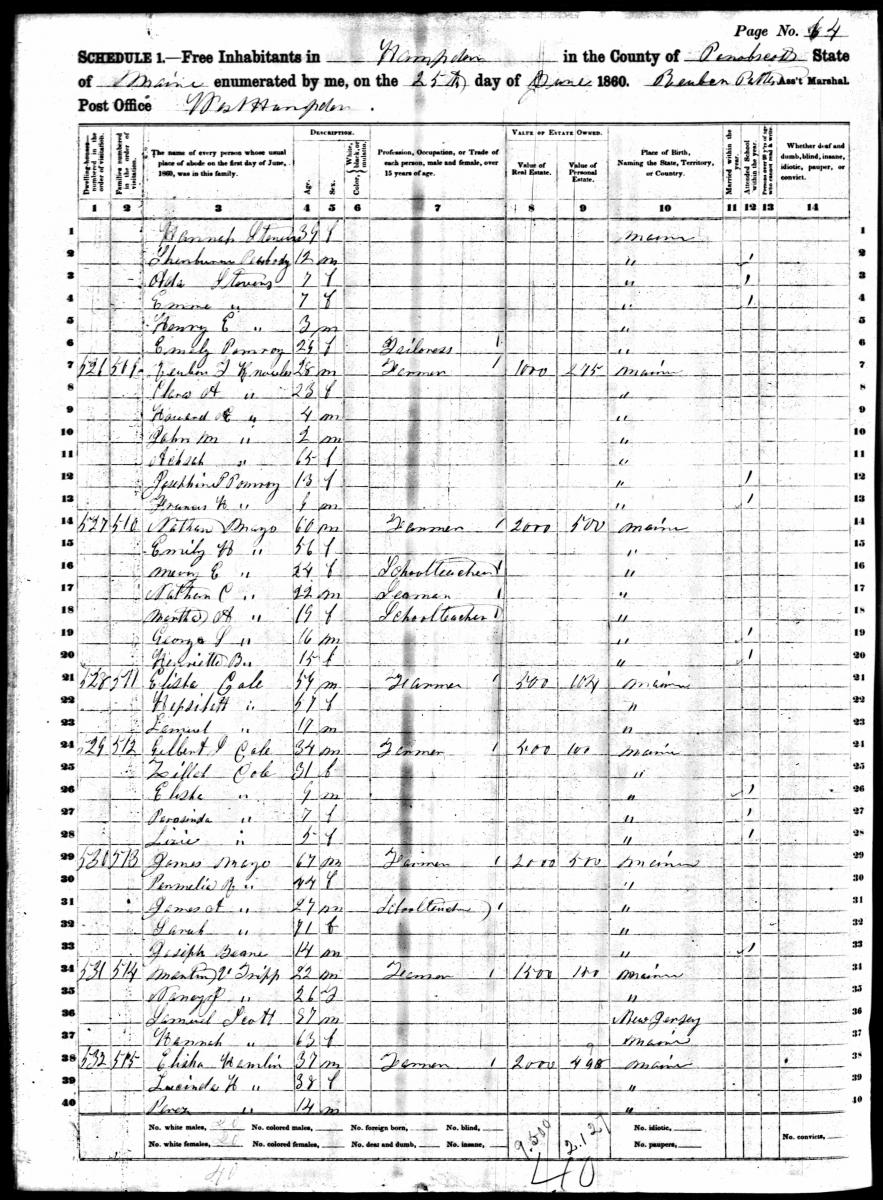 Page No. 64
SCHEDULE 1.—Free Inhabitants in Hampden in the County of Penobscot State
of Maine enumerated by me, on the 25th day of June 1860. Reuben Ass't Marshal.
Post Office West Hampden.
DESCRIPTION. VALUE OF ESTATE OWNED.
Dwelling-houses— numbered in the order of visitation. Families numbered in the order of visitation. The name of every person whose usual place of abode on the first day of June, 1860, was in this family. Age. Sex. Color, White, black, or mulatto. Profession, Occupation, or Trade of each person, male and female, over 15 years of age. Value of Real Estate. Value of Personal Estate. Place of Birth, Naming the State, Territory, or Country. Married within the year. Attended School within the year. Persons over 20 y'rs of age who cannot read & write. Whether deaf and dumb, blind, insane, idiotic, pauper, or convict.
1 2 3 4 5 6 7 8 9 10 11 12 13 14
1 Hannah Stevens 39 f Maine 1
2 Peabody 12 m " / 2
3 Stevens 7 f " / 3
4 " 7 f " / 4
5 Henry E " 3 m " 5
6 Emely Pomroy f Tailoress / " 6
7 526 509 Reuben Knowles 28 m Farmer / 1000 275 Maine 7
8 Clara A " 23 f " 8
9 Howard " 4 m " 9
10 John M " 2 m " 10
11 Achsah " 65 f " 11
12 Josephine P Pomroy 13 f " / 12
13 Francis " m " / 13
14 527 510 Nathan Mayo 60 m Farmer / 2000 500 Maine 14
15 Emily " 56 f " 15
16 E " 24 f Schoolteacher / " 16
17 Nathan C " 22 m Seaman / " 17
18 Martha A " 19 f Schoolteacher / " 18
19 George " 16 m " / 19
20 Henrietta B " 15 f " / 20
21 528 511 Elisha Cole 59 m Farmer / 500 Maine 21
22 " 57 f " 22
23 " 17 m " 23
24 29 512 Gilbert Cole 34 m Farmer / 500 100 Maine 24
25 Cole 31 f " 25
26 Elisha " 9 m " / 26
27 " 7 f " / 27
28 Lizie " 5 f " / 28
29 530 513 James Mayo 67 m Farmer / 2000 500 Maine 29
30 Permelia " 44 f " 30
31 James A " 27 m Schoolteacher / " 31
32 Sarah " 71 f " 32
33 Joseph 14 m " / 33
34 531 514 Martin V Tripp 22 m Farmer / 1500 100 Maine 34
35 Nancy " 26 f " 35
36 Samuel Scott 87 m New Jersey 36
37 Hannah " 63 f Maine 37
38 532 515 Elisha Hamlin 37 m Farmer / 2000 498 Maine 38
39 Lucinda H " 38 f " 39
40 Perez " 14 m " 40
No. white males, 20 No. colored males, No. foreign born, No. blind, 9.500 2.127 No. idiotic, No. convicts,
No. white females, 20 No. colored females, No. deaf and dumb, No. insane, No. paupers,
40 40